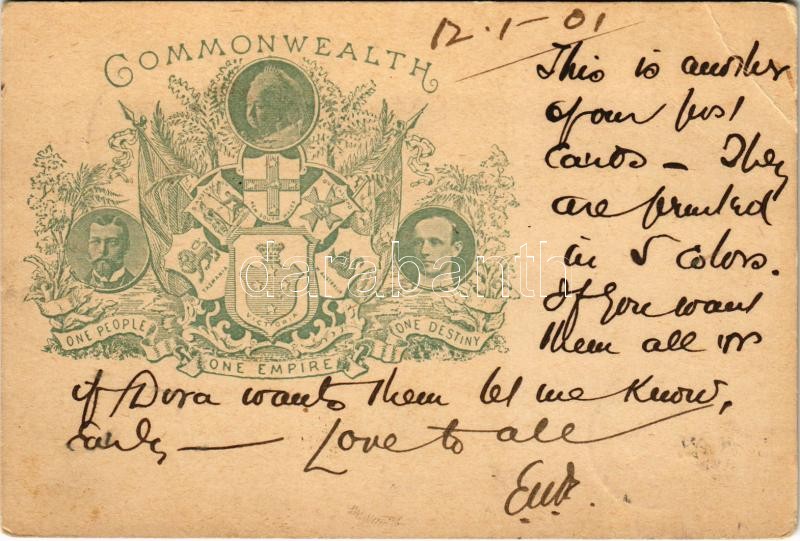 COMMONWEALTH
12.1-01
This is another
of our post
cards - They
are printed
in 5 colors.
If you want
them all or
if Dora wants them let me know,
early — Love to all
ONE PEOPLE
ONE DESTINY
ONE EMPIRE
VICTORIA
darabanth